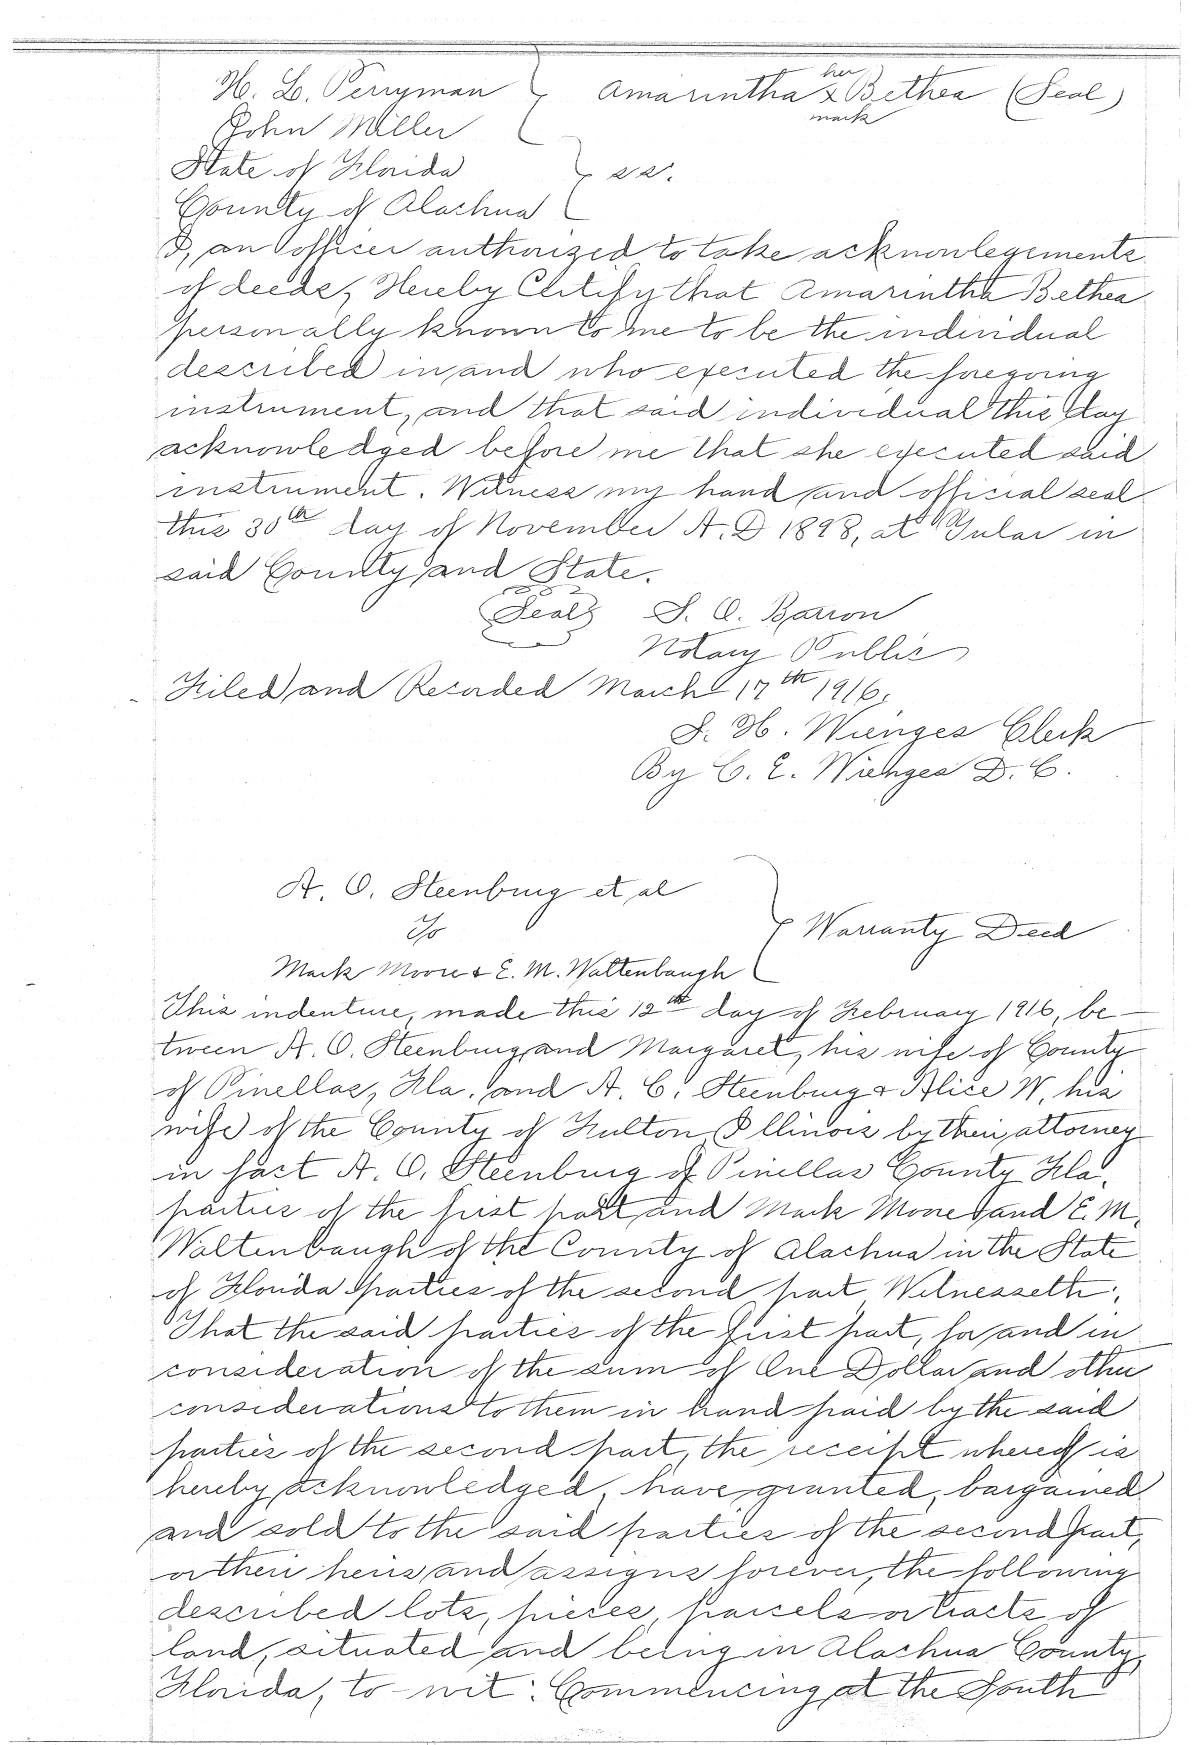 H. L. Perryman Amarintha her x mark Bethea (Seal)
John Miller
State of Florida
County of Alachua } ss.
I, an officer authorized to take acknowlegements
of deeds, Hereby Certify that Amarintha Bethea
personally known to me to be the individual
described in and who executed the foregoing
instrument, and that said individual this day
acknowledged before me that she executed said
instrument. Witness my hand and official seal
this 30th day of November A. D 1898, at Tular in
said County and State.
(Seal) S. O. Barron
Notary Public
Filed and Recorded March 17th 1916.
S. H. Wienges Clerk
By C. E. Wienges D. C.
A. O. Steenburg et al
To } Warranty Deed
Mark Moore & E. M. Waltenbaugh
This indenture, made this 12th day of February 1916, be-
tween A. O. Steenburg and Margaret, his wife of County
of Pinellas, Fla. and A. C. Steenburg & Alice W. his
wife of the County of Fulton Illinois by their attorney
in fact A. O. Steenburg of Pinellas County Fla.
parties of the first part and Mark Moore and E. M.
Waltenbaugh of the County of Alachua in the State
of Florida parties of the second part, Witnesseth;
That the said parties of the first part, for and in
consideration of the sum of One Dollar and other
considerations to them in hand paid by the said
parties of the second part, the receipt whereof is
hereby acknowledged, have granted, bargained
and sold to the said parties of the second part,
or their heirs and assigns forever, the following
described lots, pieces, parcels or tracts of
land, situated and being in Alachua County,
Florida, to-wit: Commencing at the South